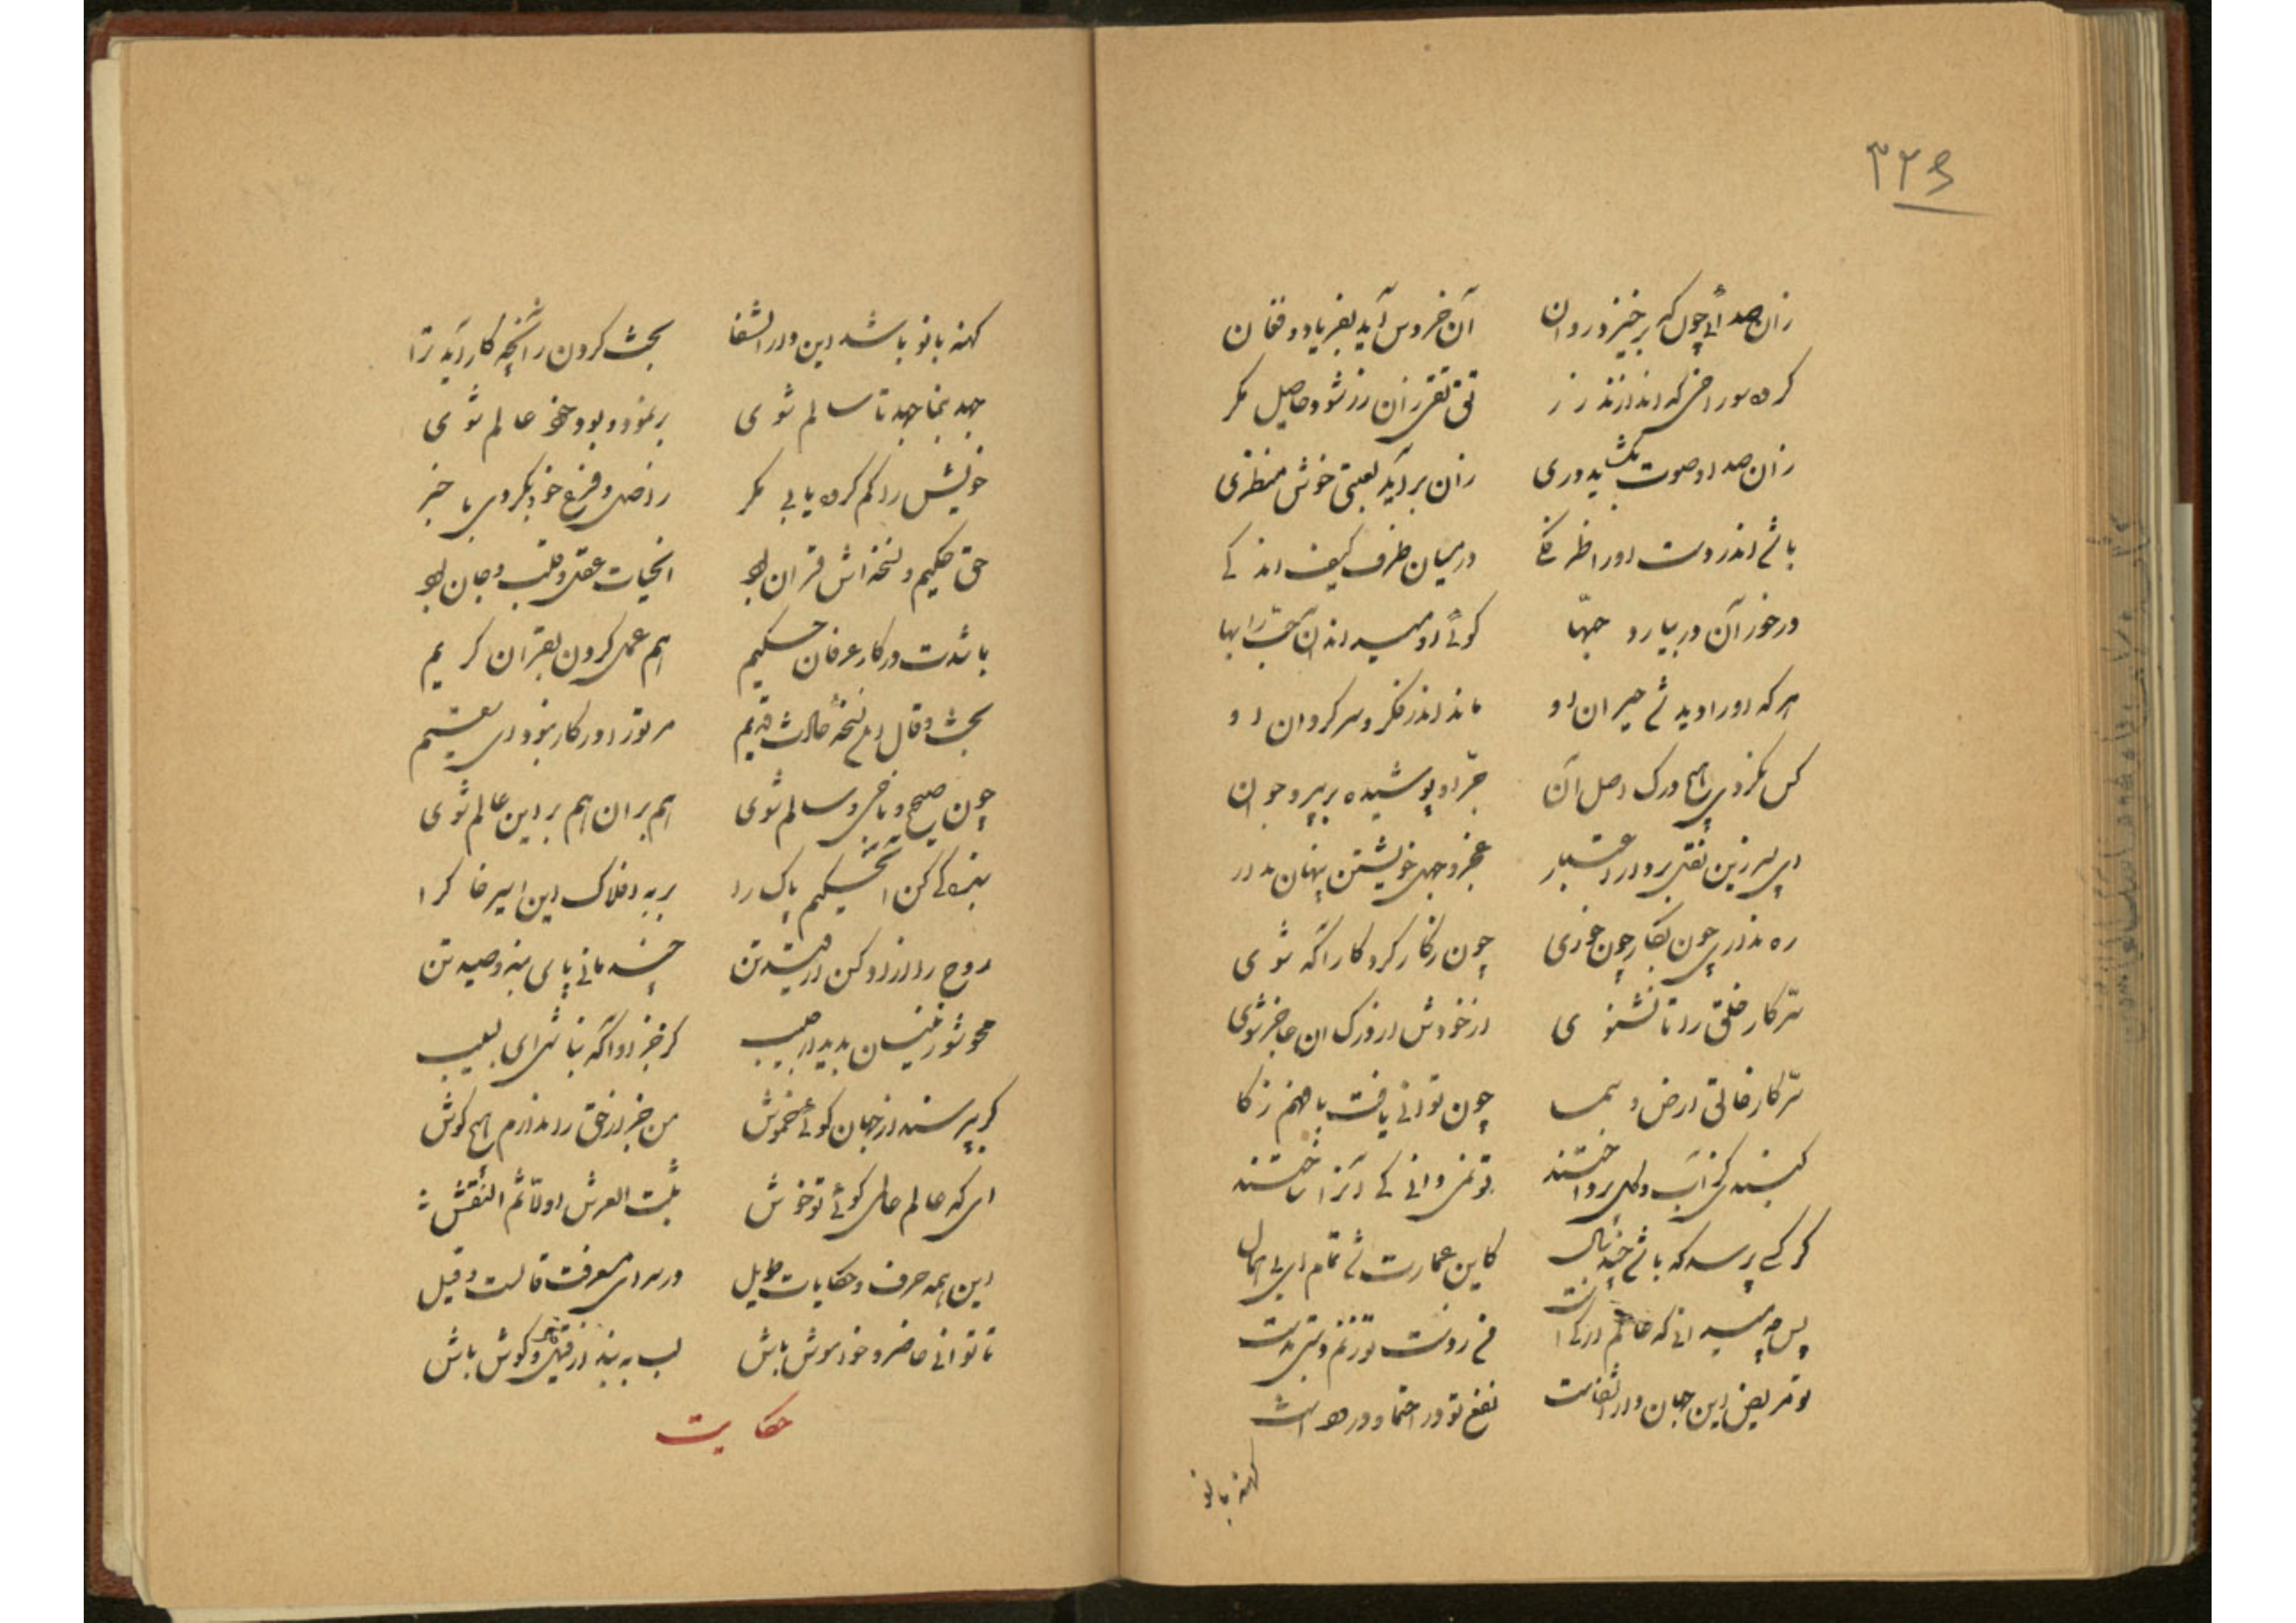 ۳۲۶
زان صدائی چون که برخیزد روان آن خروس آید بفریاد و فغان
کره سوراخی که اندازند زر تق تقی زان زر شود حاصل مگر
زان صدا و صوت بگشاید دری زان برآید لعبتی خوش منظری
باشی اندر دست او را ظرفکی در میان ظرف کیف اندکی
درخور آن در بیارد حبها گوئی او میداند آن حب را بها
هر که او را دید شی حیران او ماند اندر فکر و سرگردان او
کس نکردی هیچ درک اصل آن جز او پوشیده بر پیر و جوان
ای پسر زین نقل برو در اعتبار عجز و جهل خویشتن پنهان مدار
ره نداری چون بکار چون خودی چون ز کار کردگار آگه شوی
سر کار خلق را تا نشنوی از خودش از درک آن عاجز شوی
سر کار خالق ارض و سما چون توانی یافت با فهم ذکا
گنبدی کز آب و گل پرداختند تو نمی دانی کی آنرا ساختند
گر کسی پرسد که باشی چند سال کاین عمارت شی تمام ای بی اهمال
پس چه میدانی که عالم از کی است
تو مریض این جهان دار الشفاست نفع تو در احتما و در دواست
کهنه بانو
کهنه بانو باشد این دار الشفا بحث کردن زآنچه کار آید ترا
جهد بنما جهد تا سالم شوی بر نمود و بود خود عالم شوی
خویش را گم کرده یابی مگر ز اصل و فرع خود نگردی با خبر
حق حکیم و نسخه اش قرآن بود آنحیات عقل و قلب و جان بود
باشدت در کار عرفان حکیم هم عمل کردن بقرآن کریم
بحث و قال این نسخه حادث قدیم مر ترا در کار نبود ای سقیم
چون صحیح و ناجی و سالم شوی هم بر آن هم بر این عالم شوی
بندگی کن آن حکیم پاک را بر به افلاک این اسیر خاک را
روح را آزاد کن از قید تن چند مانی پای بند و صید تن
محو شو زینسان بدیدار حبیب گر خبر داد آگه نباشی ای لبیب
گر بپرسند از جهان گوئی خموش من خبر از حق را ندارم هیچ گوش
ای که عالم عالم گوئی تو خوش ثبت العرش اولا ثم انقش
این همه حرف و حکایات طویل در سرای معرفت قالست و قیل
تا توانی حاضر و خود هوش باش لب به بند از قیل و گوش باش
حکایت